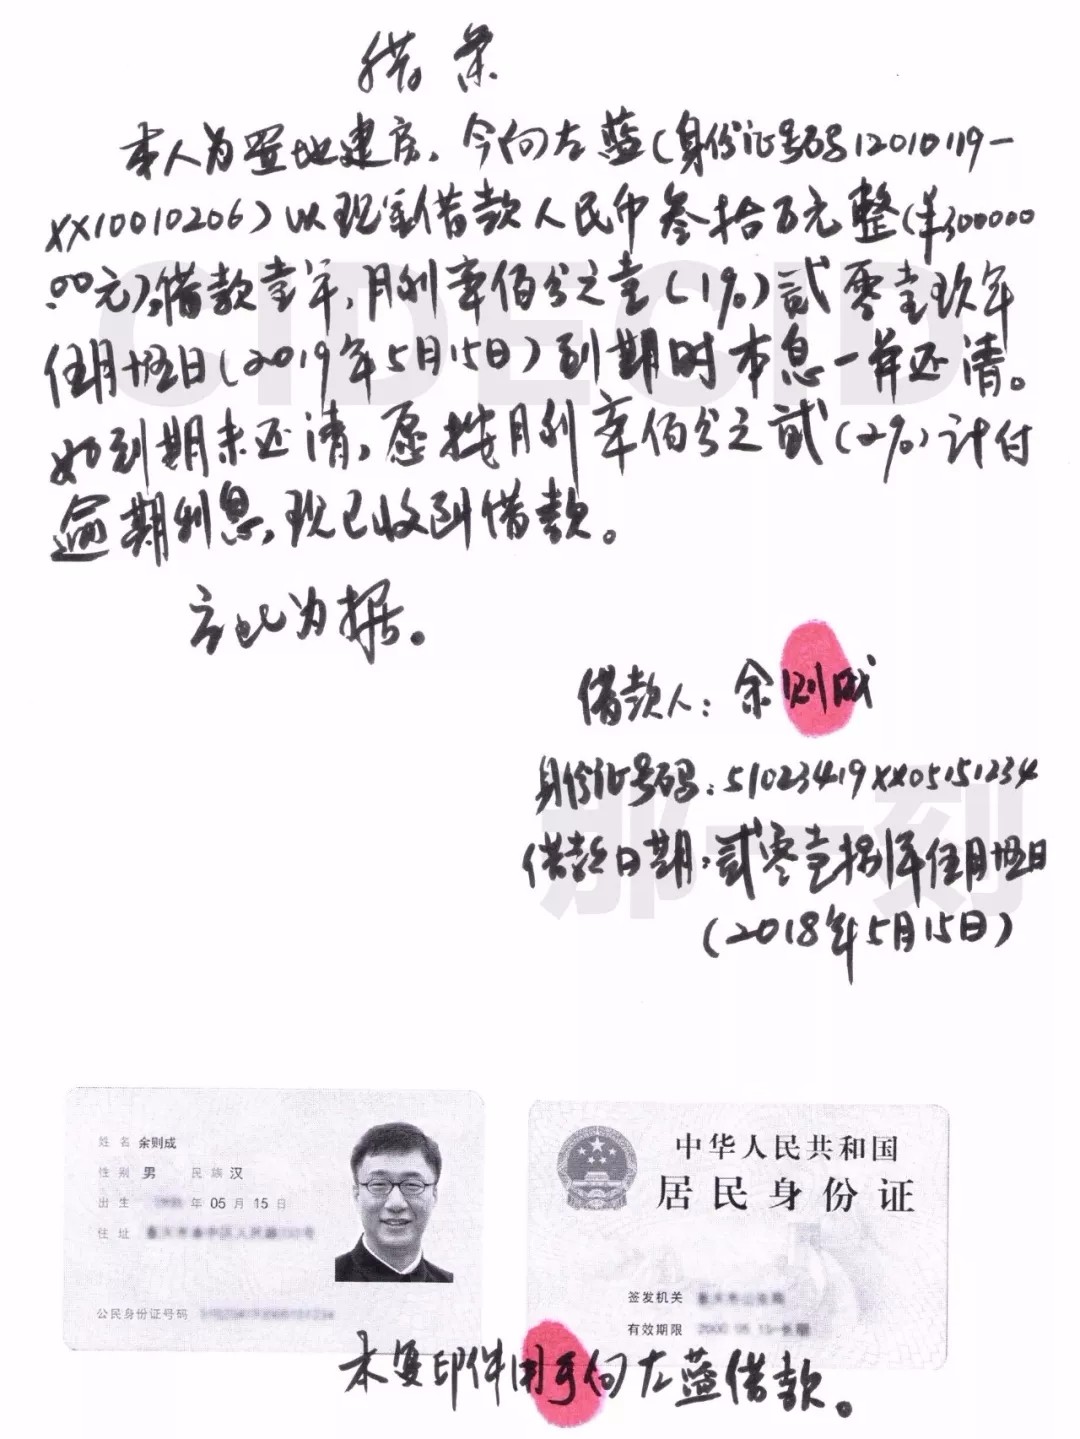 借条
本人为置地建房，今向左蓝（身份证号码12010119-
XX10010206）以现金借款人民币叁拾万元整（¥300000
.00元），借款壹年，月利率佰分之壹（1%）贰零壹玖年
伍月拾伍日（2019年5月15日）到期时本息一并还清。
如到期未还清，愿按月利率佰分之贰（2%）计付
逾期利息，现已收到借款。
立此为据。
借款人：余则成
身份证号码：51023419XX05151234
借款日期：贰零壹捌年伍月拾伍日
（2018年5月15日）
CIDECID
那一刻
姓名 余则成
性别 男 民族 汉
出生 年 05 月 15 日
住址
公民身份证号码
中华人民共和国
居民身份证
签发机关
有效期限
本复印件用于向左蓝借款。